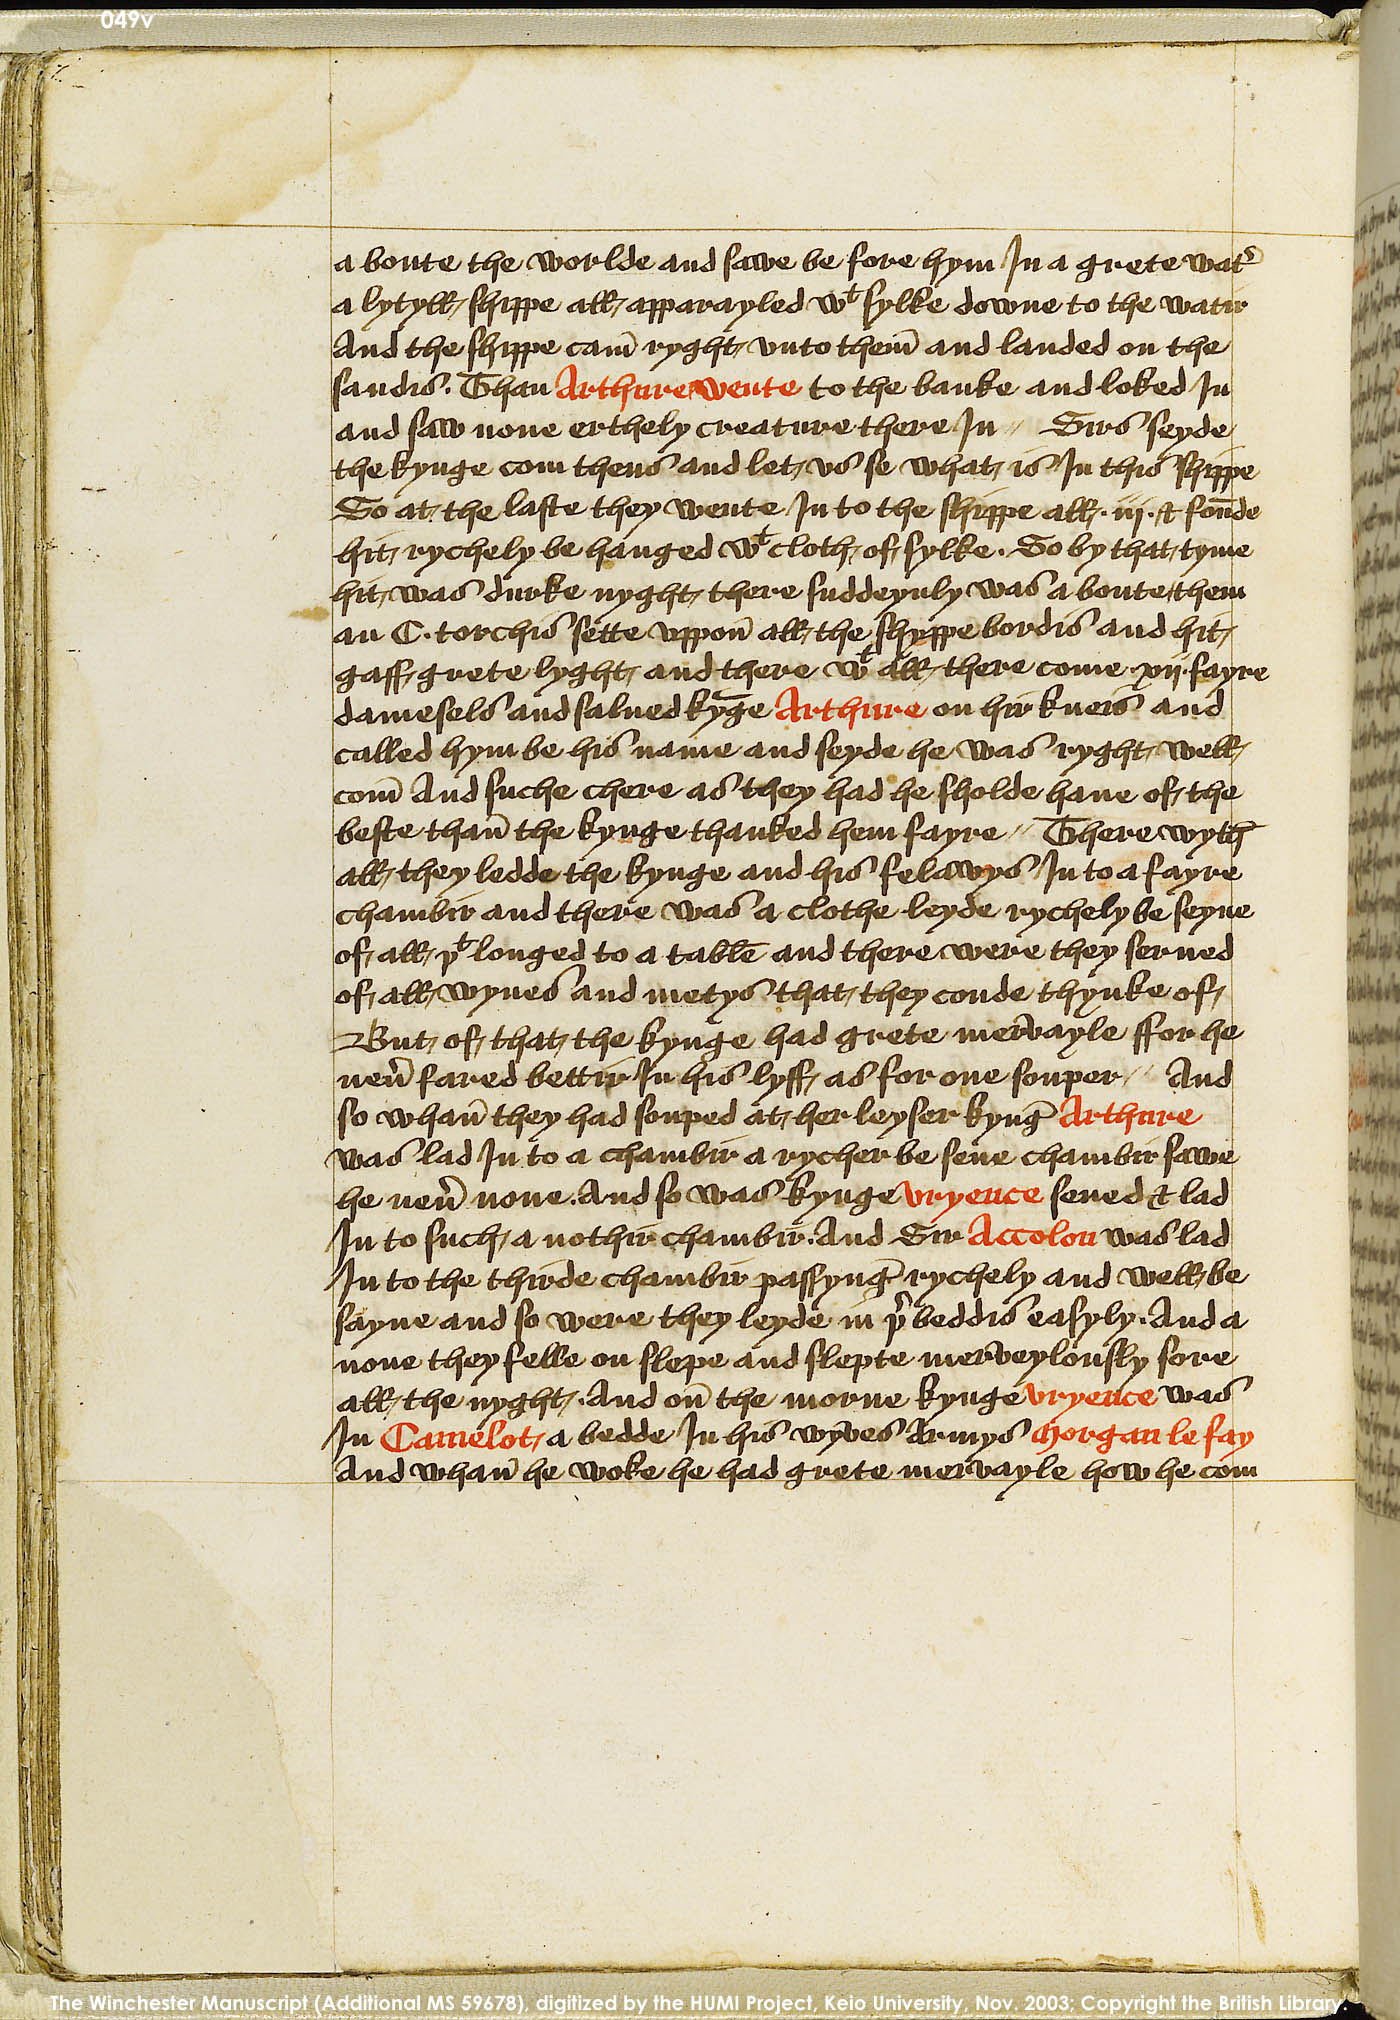 049v
a boute the worlde and sawe be fore hym In a grete wat̾
a lytyll shippe all apparayled wᵗ sylke downe to the watir
And the shippe cam̄ ryght vnto them̄ and landed on the
sandis. Than Arthure wente to the banke and loked In
and saw none erthely creature there In // Sirs seyde
the kynge com thens and let vs se what is In this shippe
So at the laste they wente In to the shippe all .iij. & foūde
hit rychely be hanged wᵗ cloth of sylke. So by that tyme
hit was durke nyght there suddeynly was a boute them
an C. torchis sette vppon̄ all the shyppe bordis and hit
gaff grete lyght and there wᵗ all there come .xij. fayre
damesels and salued kyn̄ge Arthure on hir kneis and
called hym be his name and seyde he was ryght well
com̄ And suche chere as they had he sholde haue of the
beste than̄ the kynge thanked hem fayre // There wyth
all they ledde the kynge and his felawys In to a fayre
chambir and there was a clothe leyde rychely be seyne
of all þᵗ longed to a table and there were they serued
of all wynes and metys that they coude thynke of
But of that the kynge had grete mervayle ffor he
neu̾ fared bettir In his lyff as for one souper // And
so whan̄ they had souped at her leyser kyng̾ Arthure
was lad In to a chambir a rycher be sene chambir sawe
he neu̾ none. And so was kynge vryence serued & lad
In to such a nothir chambir. And Sir Accolon was lad
In to the thirde chambir passyng̾ rychely and well be
sayne and so were they leyde in þ̾ beddis easyly. And a
none they felle on slepe and slepte merveylously sore
all the nyght. And on̄ the morne kynge vryence was
In Camelot a bedde In his wyves Armys Morgan le fay
And whan̄ he woke he had grete mervayle how he com
The Winchester Manuscript (Additional MS 59678), digitized by the HUMI Project, Keio University, Nov. 2003; Copyright the British Library.